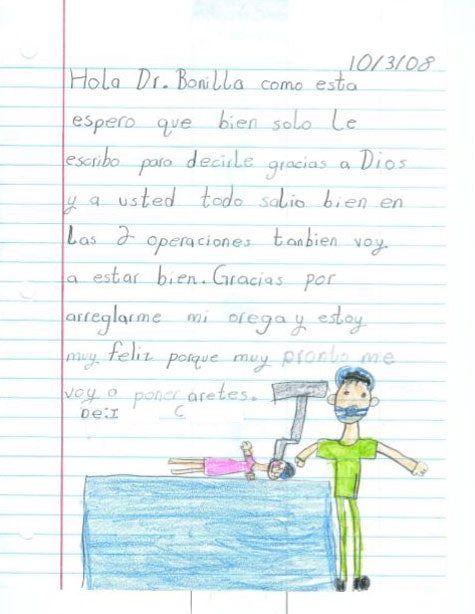 10/3/08
Hola Dr. Bonilla como esta
espero que bien solo Le
escribo para decirle gracias a Dios
y a usted todo salio bien en
Las 2 operaciones tanbien voy
a estar bien. Gracias por
arreglarme mi orega y estoy
muy feliz porque muy pronto me
voy a poner aretes.
De: I C